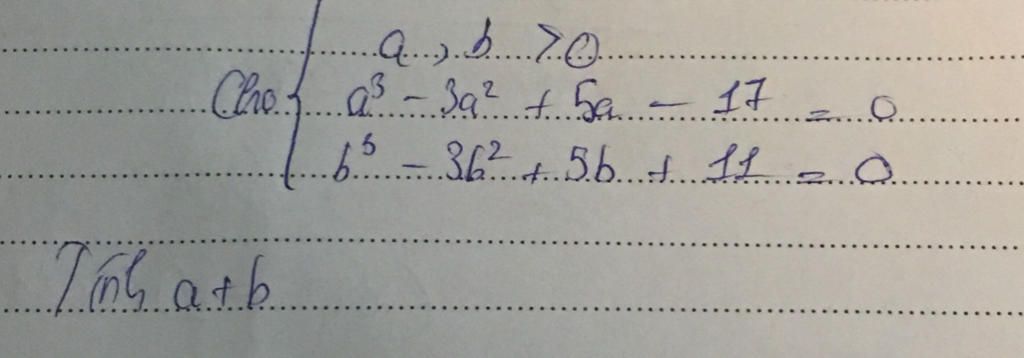 a, b > 0
Cho { a³ - 3a² + 5a - 17 = 0
b³ - 3b² + 5b + 11 = 0
Tính a+b